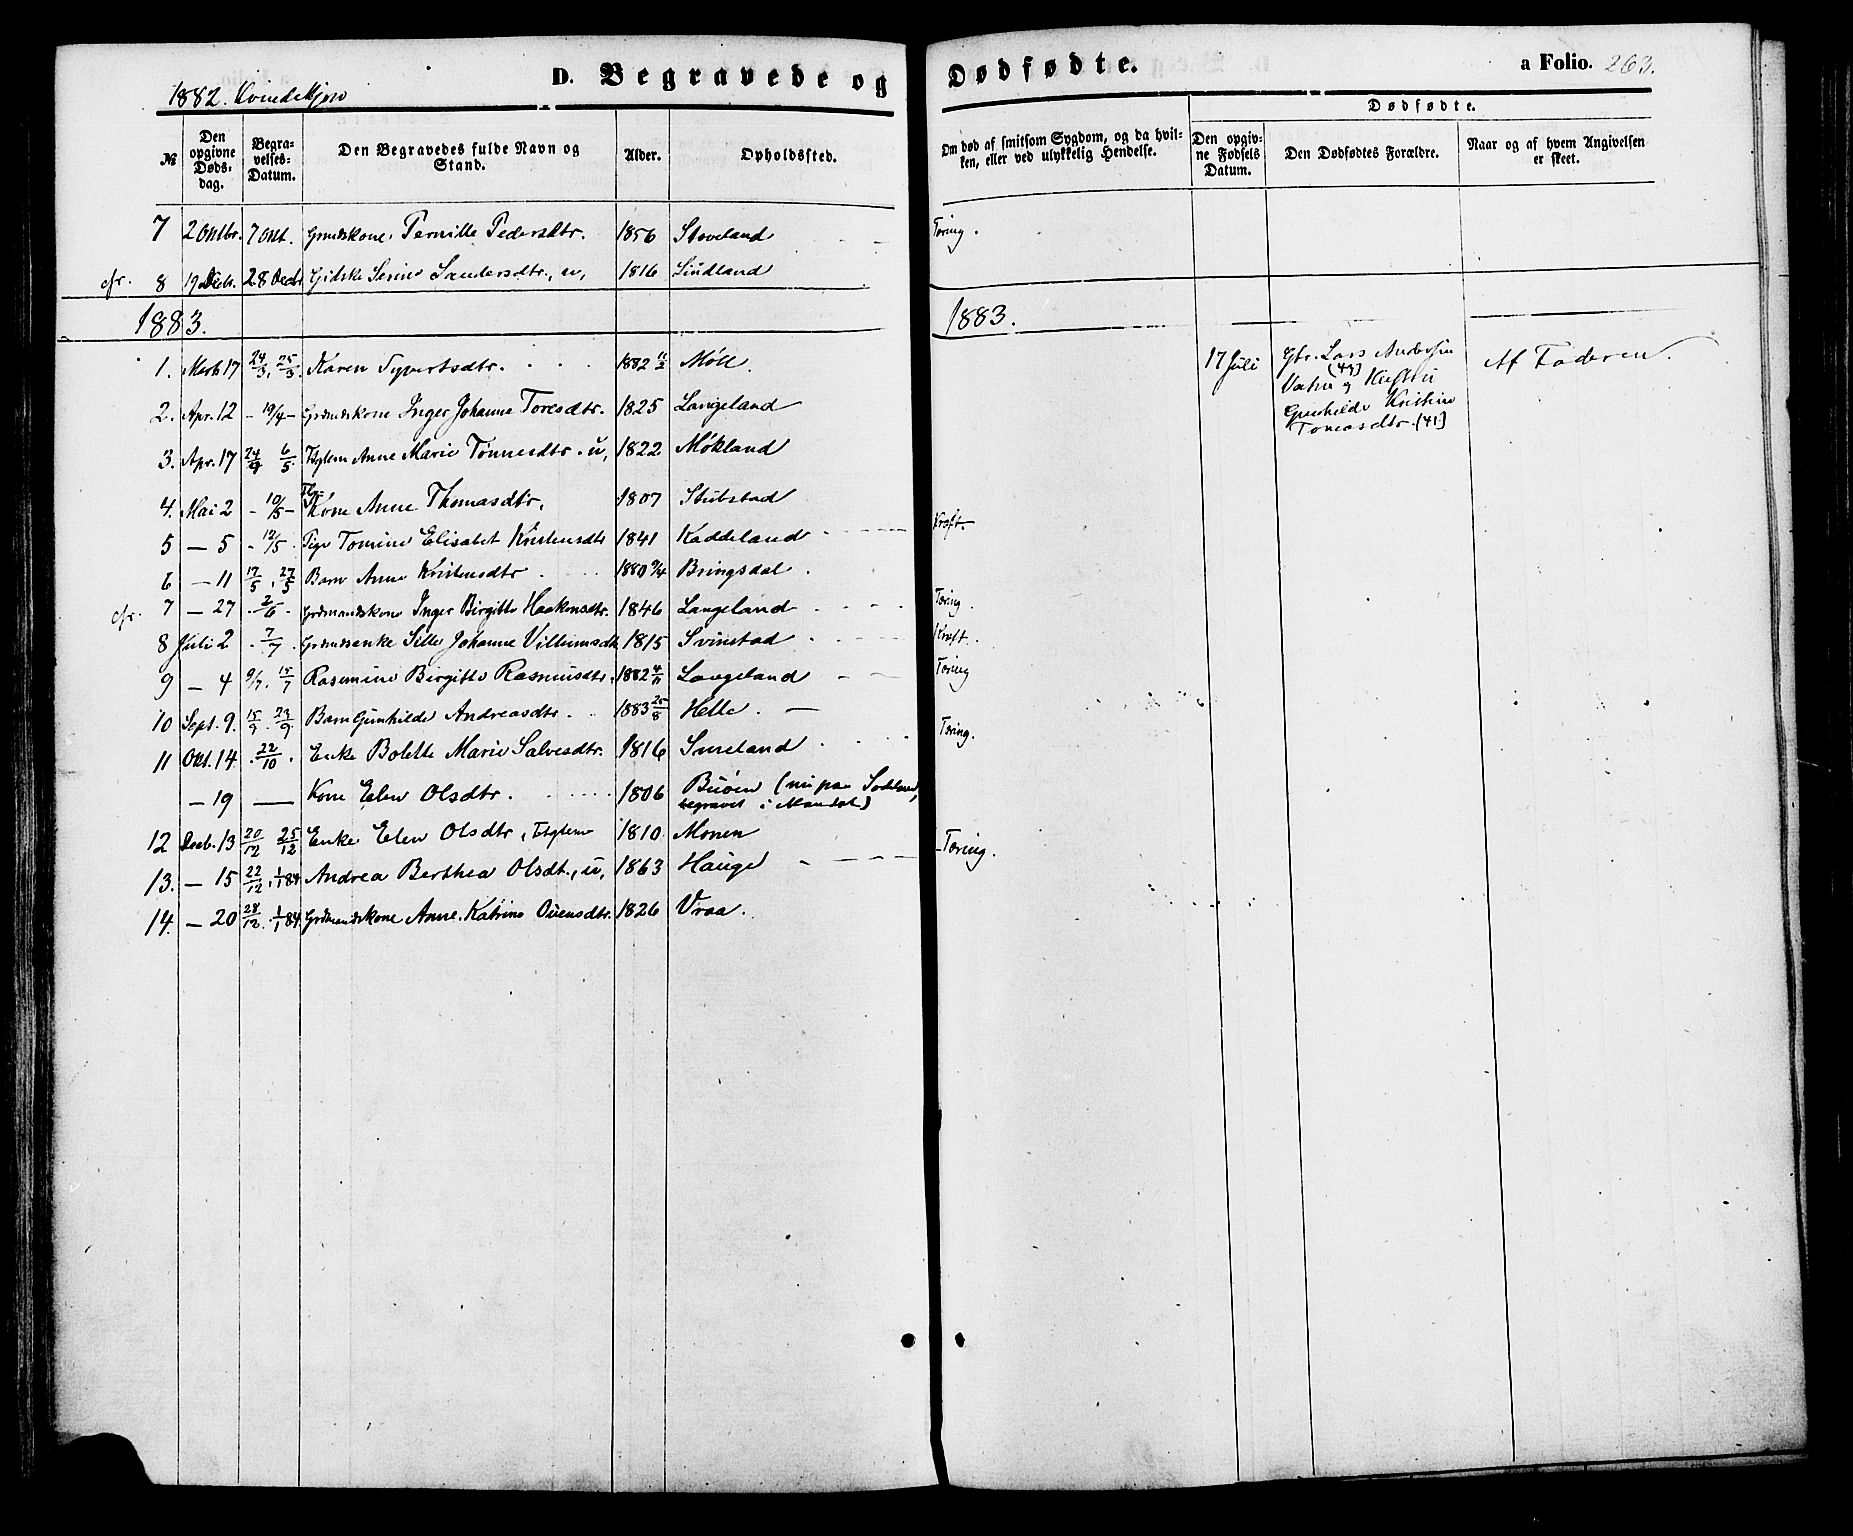 1882. Kvindekjøn
D. Begravede og Dødfødte.
a Folio. 263.
№ Den opgivne Dødsdag. Begravelses-Datum. Den Begravedes fulde Navn og Stand. Alder. Opholdssted. Om død af smitsom Sygdom, og da hvilken, eller ved ulykkelig Hendelse.
Dødfødte.
Den opgivne Fødsels Datum. Den Dødfødtes Forældre. Naar og af hvem Angivelsen er skeet.
7 2 Oktbr. 7 Okt. Grmdskone Pernille Pedersdtr. 1856 Stoveland Tæring.
cfr. 8 19 Decbr. 28 Decbr Gidske Serine Sandersdtr., u, 1816 Lindland
1883. 1883.
1. Marts 17 24/3, 25/3. Karen Syvertsdtr. 1882 11/2 Møll
2. Apr. 12 - 19/4 - Grdmdskone Inger Johanne Toresdtr. 1825 Langeland
3. Apr. 17 24/4 6/5 Ftglem Anne Marie Tønnesdtr. u, 1822 Møkland
4. Mai 2 - 10/5 - Kone Anne Thomasdtr. 1807 Stubstad
5 — 5 - 12/5 . Pige Tomine Elisabet Kristensdtr 1841 Kaddeland Kræft.
6 — 11 17/5, 27/5 Barn Anne Kristensdtr 1880 9/4 Bringsdal
cfr. 7 — 27 . 2/6 . Grdmandskone Inger Birgitte Haakonsdtr. 1846 Langeland Tæring.
8 Juli 2 . 7/7 . Grdmdsenke Sille Johanne Villumsdtr 1815 Svinstad Kræft.
9 — 4 9/7. 15/7 Rasmine Birgitte Rasmusdtr. 1882 4/11 Langeland Tæring
10 Sept. 9. 15/9. 23/9 Barn Gunhilde Andreasdtr. 1883 25/8 Helle. —
11 Okt. 14 . 22/10 . Enke Bolette Marie Salvesdtr. 1816 Smeland Tæring.
— 19 — Kone Elen Olsdtr. 1806 Buøen (nu paa
begravet i Mandal)
12 Decb. 13 20/12 25/12 Enke Elen Olsdtr, Ftglem 1810 Monen
13. — 15 22/12, 1/1 84 Andrea Berthea Olsdt., u, 1863 Hauge Tæring.
14. — 20 28/12. 1/1 84 Grdmandskone Anne Katrine Ouensdtr. 1826 Vraa.
17 Juli Gbr. Lars Andersen Af Faderen.
(47)
Vatne og Kustru
Gunhilde Kristine
Tomasdtr. (41)